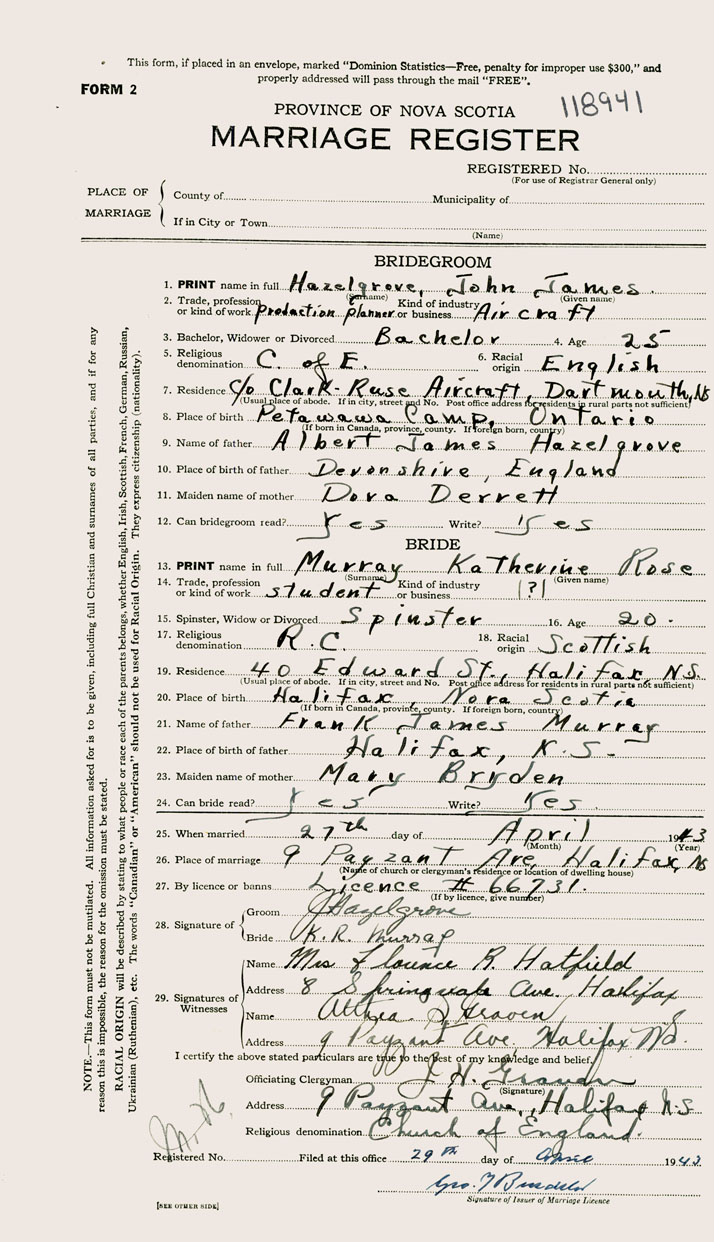 This form, if placed in an envelope, marked "Dominion Statistics—Free, penalty for improper use $300," and
properly addressed will pass through the mail "FREE".
FORM 2
118941
PROVINCE OF NOVA SCOTIA
MARRIAGE REGISTER
REGISTERED No.
(For use of Registrar General only)
PLACE OF MARRIAGE
County of Municipality of
If in City or Town
(Name)
BRIDEGROOM
1. PRINT name in full Hazelgrove, John James
(Surname) (Given name)
2. Trade, profession or kind of work Production planner Kind of industry or business Aircraft
3. Bachelor, Widower or Divorced Bachelor 4. Age 25
5. Religious denomination C. of E. 6. Racial origin English
7. Residence C/o Clark-Ruse Aircraft, Dartmouth, NS
(Usual place of abode. If in city, street and No. Post office address for residents in rural parts not sufficient)
8. Place of birth Petawawa Camp, Ontario
(If born in Canada, province, county. If foreign born, country)
9. Name of father Albert James Hazelgrove
10. Place of birth of father Devonshire, England
11. Maiden name of mother Dora Derrett
12. Can bridegroom read? Yes Write? Yes
BRIDE
13. PRINT name in full Murray Katherine Rose
(Surname) (Given name)
14. Trade, profession or kind of work student Kind of industry or business |?|
15. Spinster, Widow or Divorced Spinster 16. Age 20.
17. Religious denomination R.C. 18. Racial origin Scottish
19. Residence 40 Edward St., Halifax, N.S.
(Usual place of abode. If in city, street and No. Post office address for residents in rural parts not sufficient)
20. Place of birth Halifax, Nova Scotia
(If born in Canada, province, county. If foreign born, country)
21. Name of father Frank James Murray
22. Place of birth of father Halifax, N.S.
23. Maiden name of mother Mary Bryden
24. Can bride read? Yes Write? Yes.
25. When married 27th day of April 1943
(Month) (Year)
26. Place of marriage 9 Payzant Ave, Halifax, NS
(Name of church or clergyman's residence or location of dwelling house)
27. By licence or banns Licence # 66731.
(If by licence, give number)
28. Signature of
Groom J Hazelgrove
Bride K. R. Murray
29. Signatures of Witnesses
Name Mrs Florence R. Hatfield
Address 8 Springvale Ave. Halifax
Name
Address 9 Payzant Ave, Halifax NS.
I certify the above stated particulars are true to the best of my knowledge and belief,
Officiating Clergyman
(Signature)
Address 9 Payzant Ave, Halifax N.S
Religious denomination Church of England.
Registered No. Filed at this office 29th day of April 1943
Signature of Issuer of Marriage Licence
[SEE OTHER SIDE]
NOTE.—This form must not be mutilated. All information asked for is to be given, including full Christian and surnames of all parties, and if for any
reason this is impossible, the reason for the omission must be stated.
RACIAL ORIGIN will be described by stating to what people or race each of the parents belongs, whether English, Irish, Scottish, French, German, Russian,
Ukrainian (Ruthenian), etc. The words "Canadian" or "American" should not be used for Racial Origin. They express citizenship (nationality).